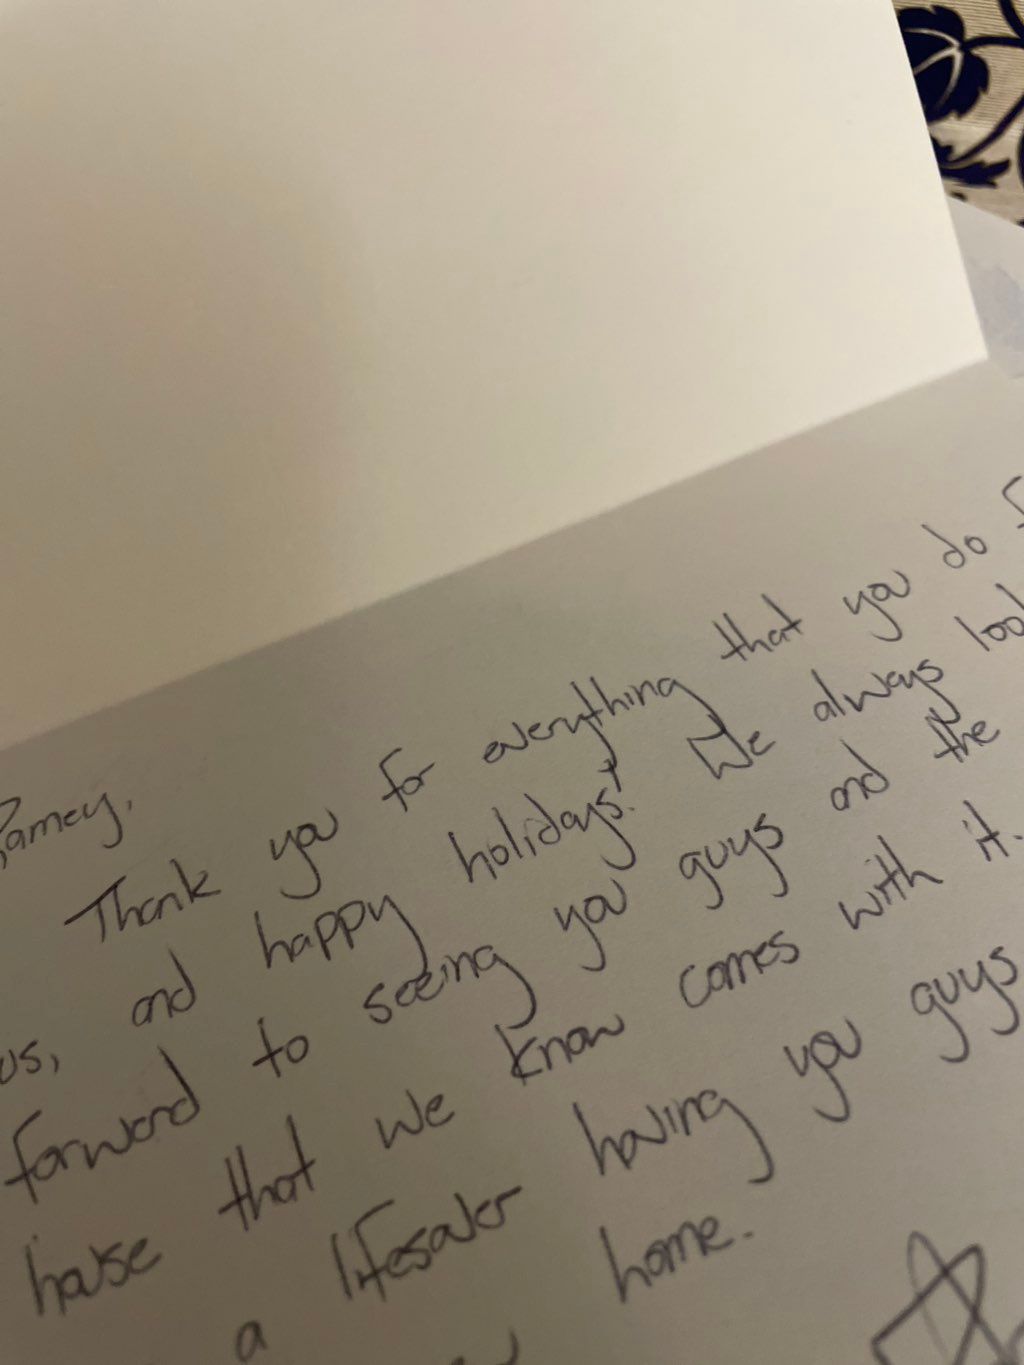 Ramey,
Thank you for everything that you do
us, and happy holidays! We always
forward to seeing you guys and the
house that we know comes with it.
a lifesaver having you guys
home.